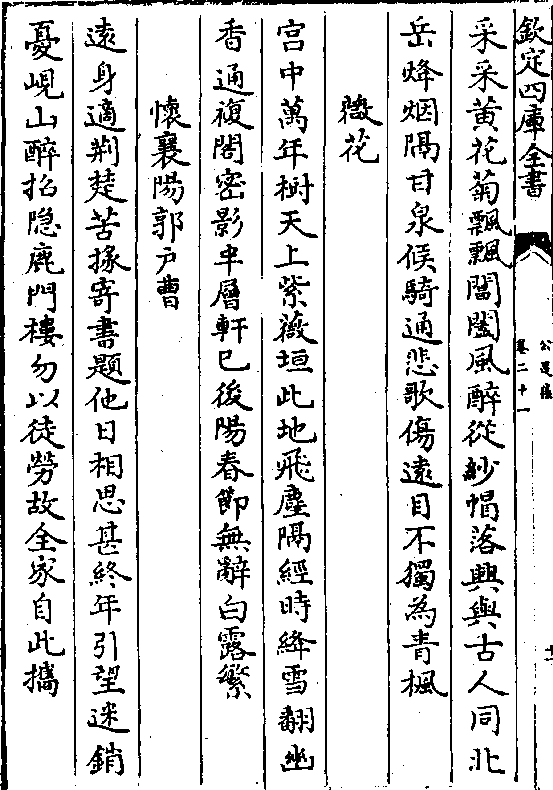 欽定四庫全書
公是集
卷二十一
采采黃花菊飄飄閶闔風醉從紗帽落興與古人同北
岳烽烟隔甘泉候騎通悲歌傷遠目不獨為青楓
薇花
宫中萬年樹天上紫薇垣此地飛塵隔經時絳雪翻幽
香通複閣密影半層軒已後陽春節無辭白露繁
懷襄陽郭户曹
遠身適荆楚苦掾寄書題他日相思甚終年引望迷銷
憂峴山醉招隐鹿門棲勿以徒勞故全家自此攜